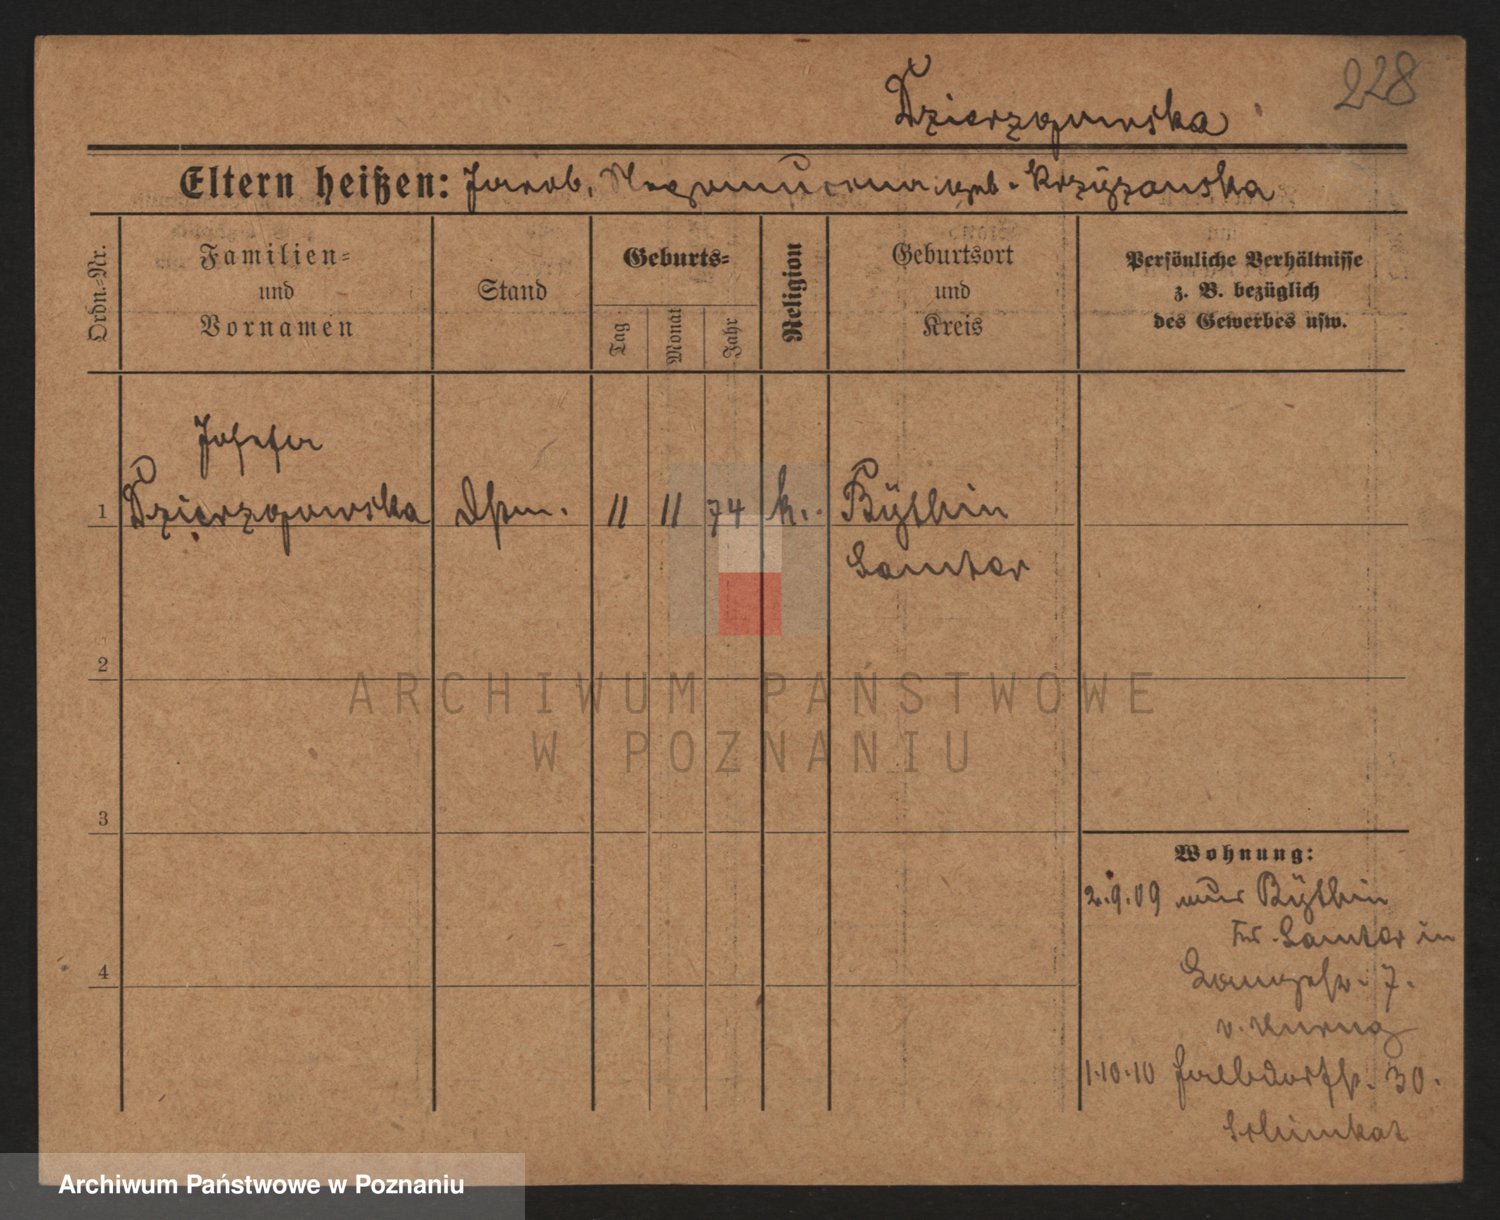 228
Dzierzgowska
Eltern heißen: Jacob, Nepomucena geb. Krzyżanska
Ordn.-Nr.
Familien-
und
Vornamen
Stand
Geburts-
Tag
Monat
Jahr
Religion
Geburtsort
und
Kreis
Persönliche Verhältnisse
z. B. bezüglich
des Gewerbes usw.
Josefa
1 Dzierzgowska Dstm. 11 11 74 k. Bÿthin
Samter
2
3
4
Wohnung:
2.9.09 aus Bÿthin
Kr. Samter in
Langestr. 7.
v.
1.10.10 Halbdorfstr. 30.
Schimkat
ARCHIWUM PAŃSTWOWE
W POZNANIU
Archiwum Państwowe w Poznaniu